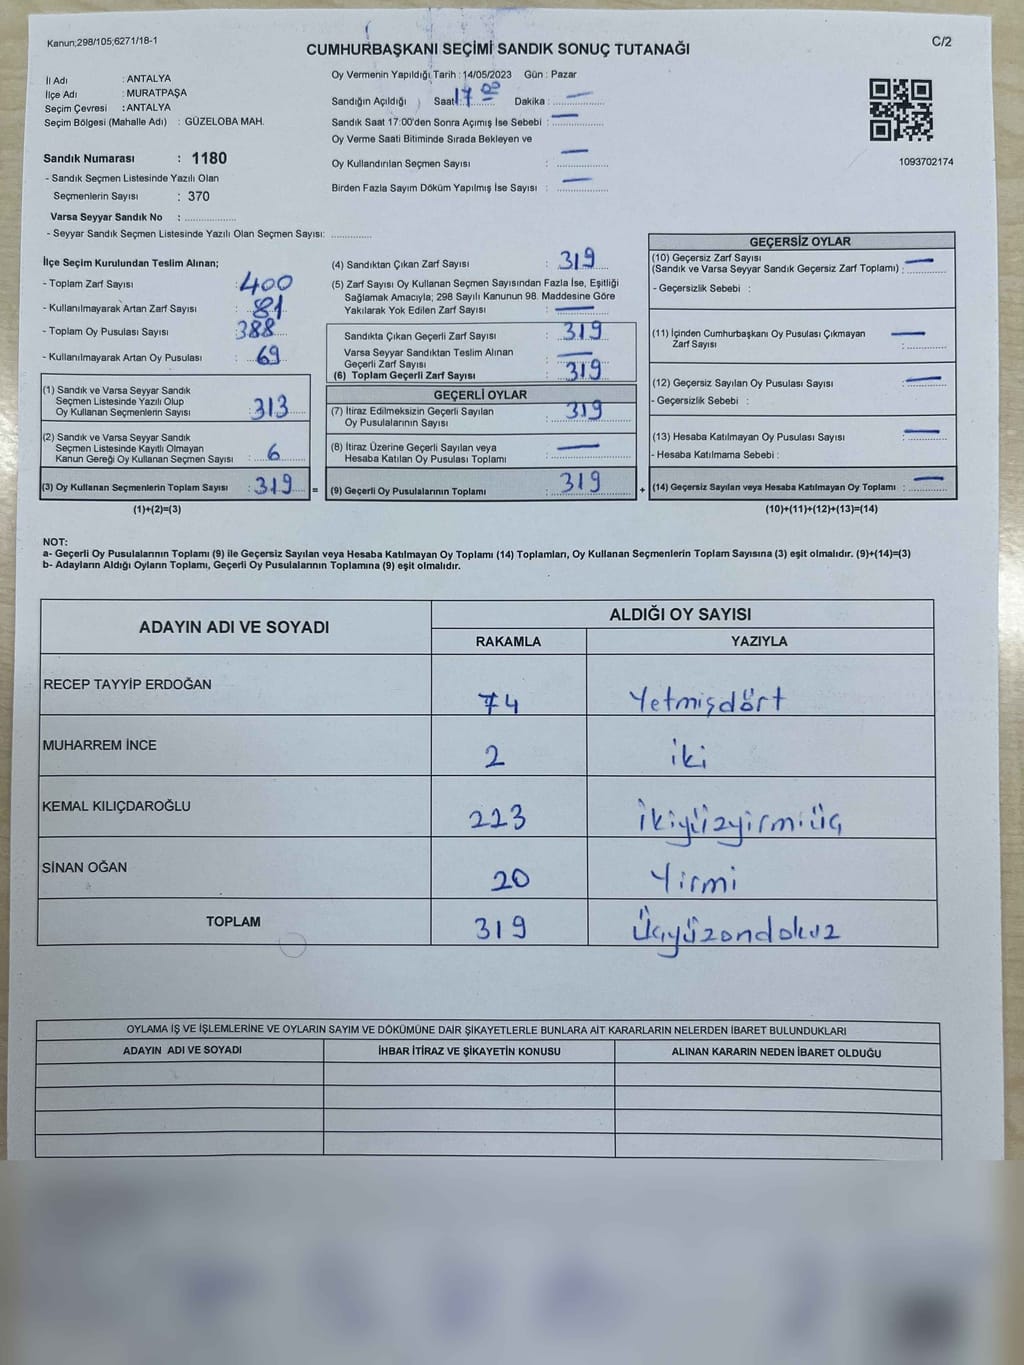 Kanun;298/105;6271/18-1
C/2
CUMHURBAŞKANI SEÇİMİ SANDIK SONUÇ TUTANAĞI
İl Adı : ANTALYA
İlçe Adı : MURATPAŞA
Seçim Çevresi : ANTALYA
Seçim Bölgesi (Mahalle Adı) : GÜZELOBA MAH.
Sandık Numarası : 1180
- Sandık Seçmen Listesinde Yazılı Olan
Seçmenlerin Sayısı : 370
Varsa Seyyar Sandık No : ..................
- Seyyar Sandık Seçmen Listesinde Yazılı Olan Seçmen Sayısı: ..............
Oy Vermenin Yapıldığı Tarih : 14/05/2023 Gün : Pazar
Sandığın Açıldığı Saat 17 00 Dakika : —
Sandık Saat 17:00'den Sonra Açımış İse Sebebi : —
Oy Verme Saati Bitiminde Sırada Bekleyen ve
Oy Kullandırılan Seçmen Sayısı : —
Birden Fazla Sayım Döküm Yapılmış İse Sayısı : —
1093702174
İlçe Seçim Kurulundan Teslim Alınan;
- Toplam Zarf Sayısı : 400
- Kullanılmayarak Artan Zarf Sayısı : 81
- Toplam Oy Pusulası Sayısı : 388
- Kullanılmayarak Artan Oy Pusulası : 69
(1) Sandık ve Varsa Seyyar Sandık
Seçmen Listesinde Yazılı Olup
Oy Kullanan Seçmenlerin Sayısı : 313
(2) Sandık ve Varsa Seyyar Sandık
Seçmen Listesinde Kayıtlı Olmayan
Kanun Gereği Oy Kullanan Seçmen Sayısı : 6
(3) Oy Kullanan Seçmenlerin Toplam Sayısı : 319
(1)+(2)=(3)
=
(4) Sandıktan Çıkan Zarf Sayısı : 319
(5) Zarf Sayısı Oy Kullanan Seçmen Sayısından Fazla İse, Eşitliği
Sağlamak Amacıyla; 298 Sayılı Kanunun 98. Maddesine Göre
Yakılarak Yok Edilen Zarf Sayısı : —
Sandıkta Çıkan Geçerli Zarf Sayısı : 319
Varsa Seyyar Sandıktan Teslim Alınan
Geçerli Zarf Sayısı : —
(6) Toplam Geçerli Zarf Sayısı : 319
GEÇERLİ OYLAR
(7) İtiraz Edilmeksizin Geçerli Sayılan
Oy Pusulalarının Sayısı : 319
(8) İtiraz Üzerine Geçerli Sayılan veya
Hesaba Katılan Oy Pusulası Toplamı : —
(9) Geçerli Oy Pusulalarının Toplamı : 319
+
GEÇERSİZ OYLAR
(10) Geçersiz Zarf Sayısı
(Sandık ve Varsa Seyyar Sandık Geçersiz Zarf Toplamı) : —
- Geçersizlik Sebebi :
(11) İçinden Cumhurbaşkanı Oy Pusulası Çıkmayan
Zarf Sayısı : —
(12) Geçersiz Sayılan Oy Pusulası Sayısı : —
- Geçersizlik Sebebi :
(13) Hesaba Katılmayan Oy Pusulası Sayısı : —
- Hesaba Katılmama Sebebi :
(14) Geçersiz Sayılan veya Hesaba Katılmayan Oy Toplamı : —
(10)+(11)+(12)+(13)=(14)
NOT:
a- Geçerli Oy Pusulalarının Toplamı (9) ile Geçersiz Sayılan veya Hesaba Katılmayan Oy Toplamı (14) Toplamları, Oy Kullanan Seçmenlerin Toplam Sayısına (3) eşit olmalıdır. (9)+(14)=(3)
b- Adayların Aldığı Oyların Toplamı, Geçerli Oy Pusulalarının Toplamına (9) eşit olmalıdır.
ADAYIN ADI VE SOYADI
ALDIĞI OY SAYISI
RAKAMLA YAZIYLA
RECEP TAYYİP ERDOĞAN 74 Yetmişdört
MUHARREM İNCE 2 iki
KEMAL KILIÇDAROĞLU 223 ikiyüzyirmiüç
SİNAN OĞAN 20 Yirmi
TOPLAM 319 Üçyüzondokuz
OYLAMA İŞ VE İŞLEMLERİNE VE OYLARIN SAYIM VE DÖKÜMÜNE DAİR ŞİKAYETLERLE BUNLARA AİT KARARLARIN NELERDEN İBARET BULUNDUKLARI
ADAYIN ADI VE SOYADI İHBAR İTİRAZ VE ŞİKAYETİN KONUSU ALINAN KARARIN NEDEN İBARET OLDUĞU